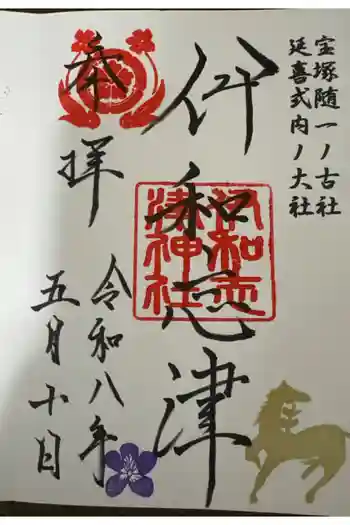 宝塚随一ノ古社
延喜式内ノ大社
伊和志津
伊和志
津神社
奉拝
令和八年
五月十日